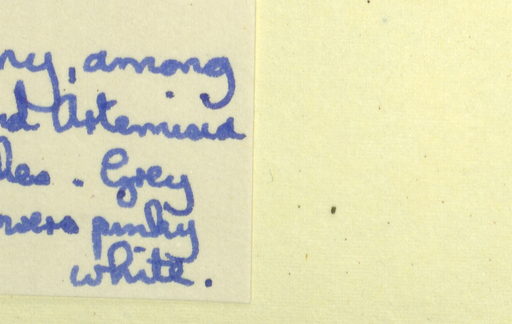 ny, among
nd Artemisia
hes. Grey
owers pinky
white.